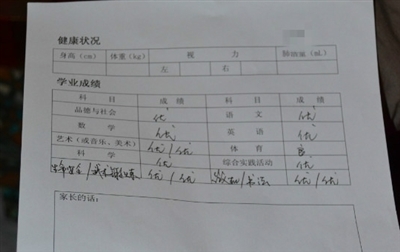 健康状况
身高(cm) 体重(kg) 视 力 肺活量(mL)
左 右
学业成绩
科 目 成 绩 科 目 成 绩
品德与社会 优 语 文 优
数 学 优 英 语 优
艺术(或音乐、美术) 优/优 体 育 良
科 学 优 综合实践活动 优
优/优 书法 优/优
家长的话: